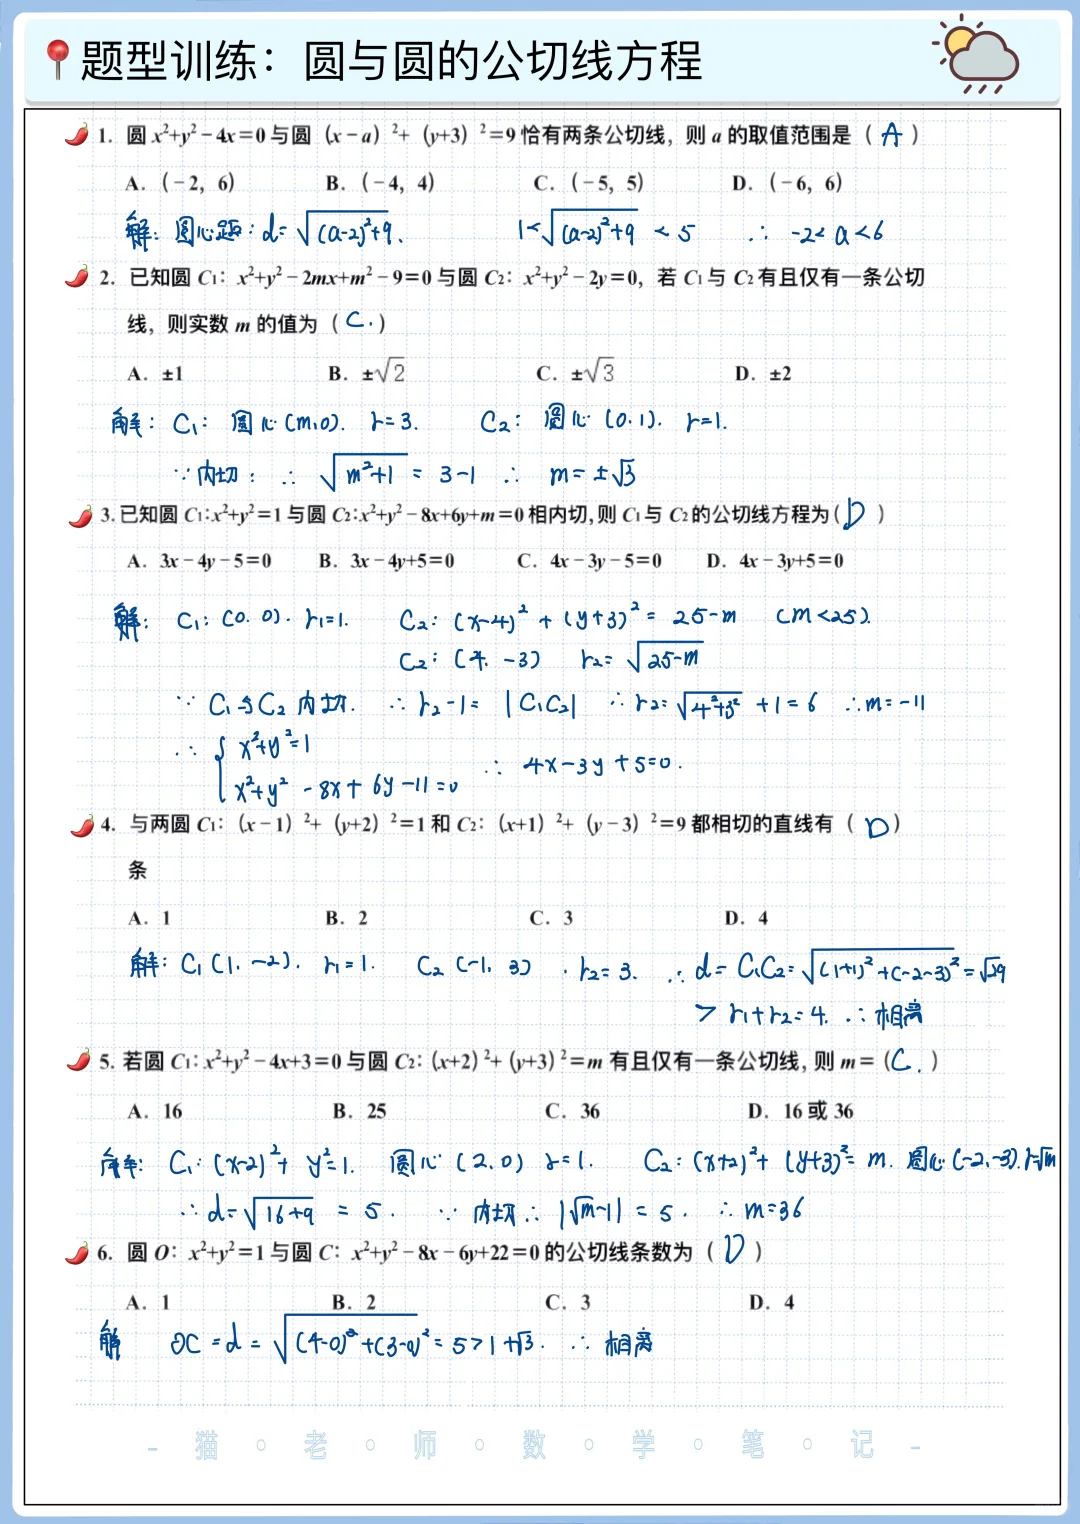 题型训练：圆与圆的公切线方程
1. 圆 x²+y²－4x=0 与圆（x－a）²+（y+3）²=9 恰有两条公切线，则 a 的取值范围是（ A ）
A.（－2，6） B.（－4，4） C.（－5，5） D.（－6，6）
解：圆心距：d=√((a-2)²+9). 1<√((a-2)²+9) < 5 ∴ -2< a <6
2. 已知圆 C₁：x²+y²－2mx+m²－9=0 与圆 C₂：x²+y²－2y=0，若 C₁ 与 C₂ 有且仅有一条公切
线，则实数 m 的值为（ C. ）
A. ±1 B. ±√2 C. ±√3 D. ±2
解：C₁：圆心(m,0). r=3. C₂：圆心(0.1). r=1.
∵内切：∴ √(m²+1) = 3-1 ∴ m=±√3
3.已知圆 C₁:x²+y²=1 与圆 C₂:x²+y²－8x+6y+m=0 相内切,则 C₁ 与 C₂ 的公切线方程为( D )
A. 3x－4y－5=0 B. 3x－4y+5=0 C. 4x－3y－5=0 D. 4x－3y+5=0
解：C₁：(0.0). r₁=1. C₂：(x-4)²+(y+3)²= 25-m (m<25).
C₂：(4. -3) r₂=√(25-m)
∵ C₁与C₂内切. ∴ r₂-1= |C₁C₂| ∴ r₂=√(4²+3²) +1=6 ∴m=-11
∴ { x²+y²=1
x²+y² -8x+6y-11=0 ∴ 4x-3y+5=0.
4. 与两圆 C₁：（x－1）²+（y+2）²=1 和 C₂：（x+1）²+（y－3）²=9 都相切的直线有（ D ）
条
A. 1 B. 2 C. 3 D. 4
解：C₁(1. -2). r₁=1. C₂(-1. 3) . r₂=3. ∴ d=C₁C₂=√((1+1)²+(-2-3)²)=√29
> r₁+r₂=4. ∴相离
5. 若圆 C₁:x²+y²－4x+3=0 与圆 C₂:(x+2)²+(y+3)²=m 有且仅有一条公切线,则 m=( C. )
A. 16 B. 25 C. 36 D. 16 或 36
解：C₁：(x-2)²+ y²=1. 圆心(2.0) r=1. C₂：(x+2)²+(y+3)²= m. 圆心(-2.-3).r=√m
∴d=√(16+9) = 5. ∵ 内切∴ |√m-1| = 5. ∴m=36
6. 圆 O：x²+y²=1 与圆 C：x²+y²－8x－6y+22=0 的公切线条数为（ D ）
A. 1 B. 2 C. 3 D. 4
解 OC =d=√((4-0)²+(3-0)²=5>1+√3. ∴ 相离
- 猫 · 老 · 师 · 数 · 学 · 笔 · 记 -